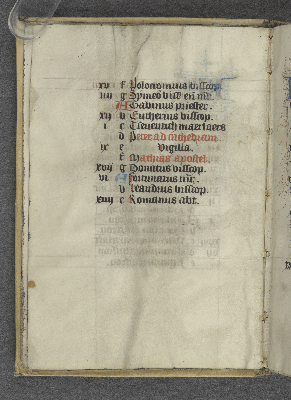 xv f Policronius bissop.
iiij g Symeo bisc en mr.
A Gabinus priester.
xij b Eutherius bissop.
i c Tseventich maertlaers
d Peter ad cathedram.
ix e Vigilia.
f Mathias apostel.
xvij g Donatus bissop.
vi A Fortunatus mr.
b Leandrus bissop.
xiiij c Romanus abt.